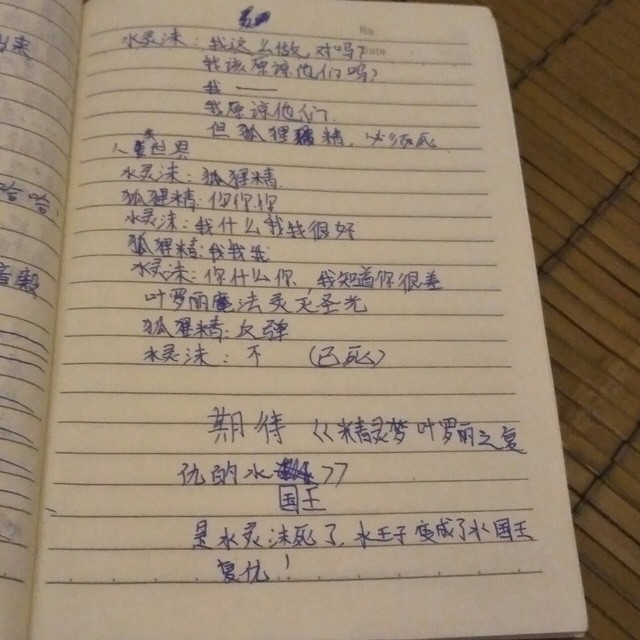 水灵沫：我这么做，对吗？
No.
Date
我该原谅他们吗？
我——
我原谅他们.
但狐狸精，必须死
人类世界
水灵沫：狐狸精.
狐狸精：你你你
水灵沫：我什么我我很好
狐狸精：我我
水灵沫：你什么你，我知道你很美
叶罗丽魔法灵灭圣光
狐狸精：反弹
水灵沫：不 （已死）
期待《精灵梦叶罗丽之复
仇的水》
国王
是水灵沫死了，水王子变成了水国王
复仇！
哈哈.